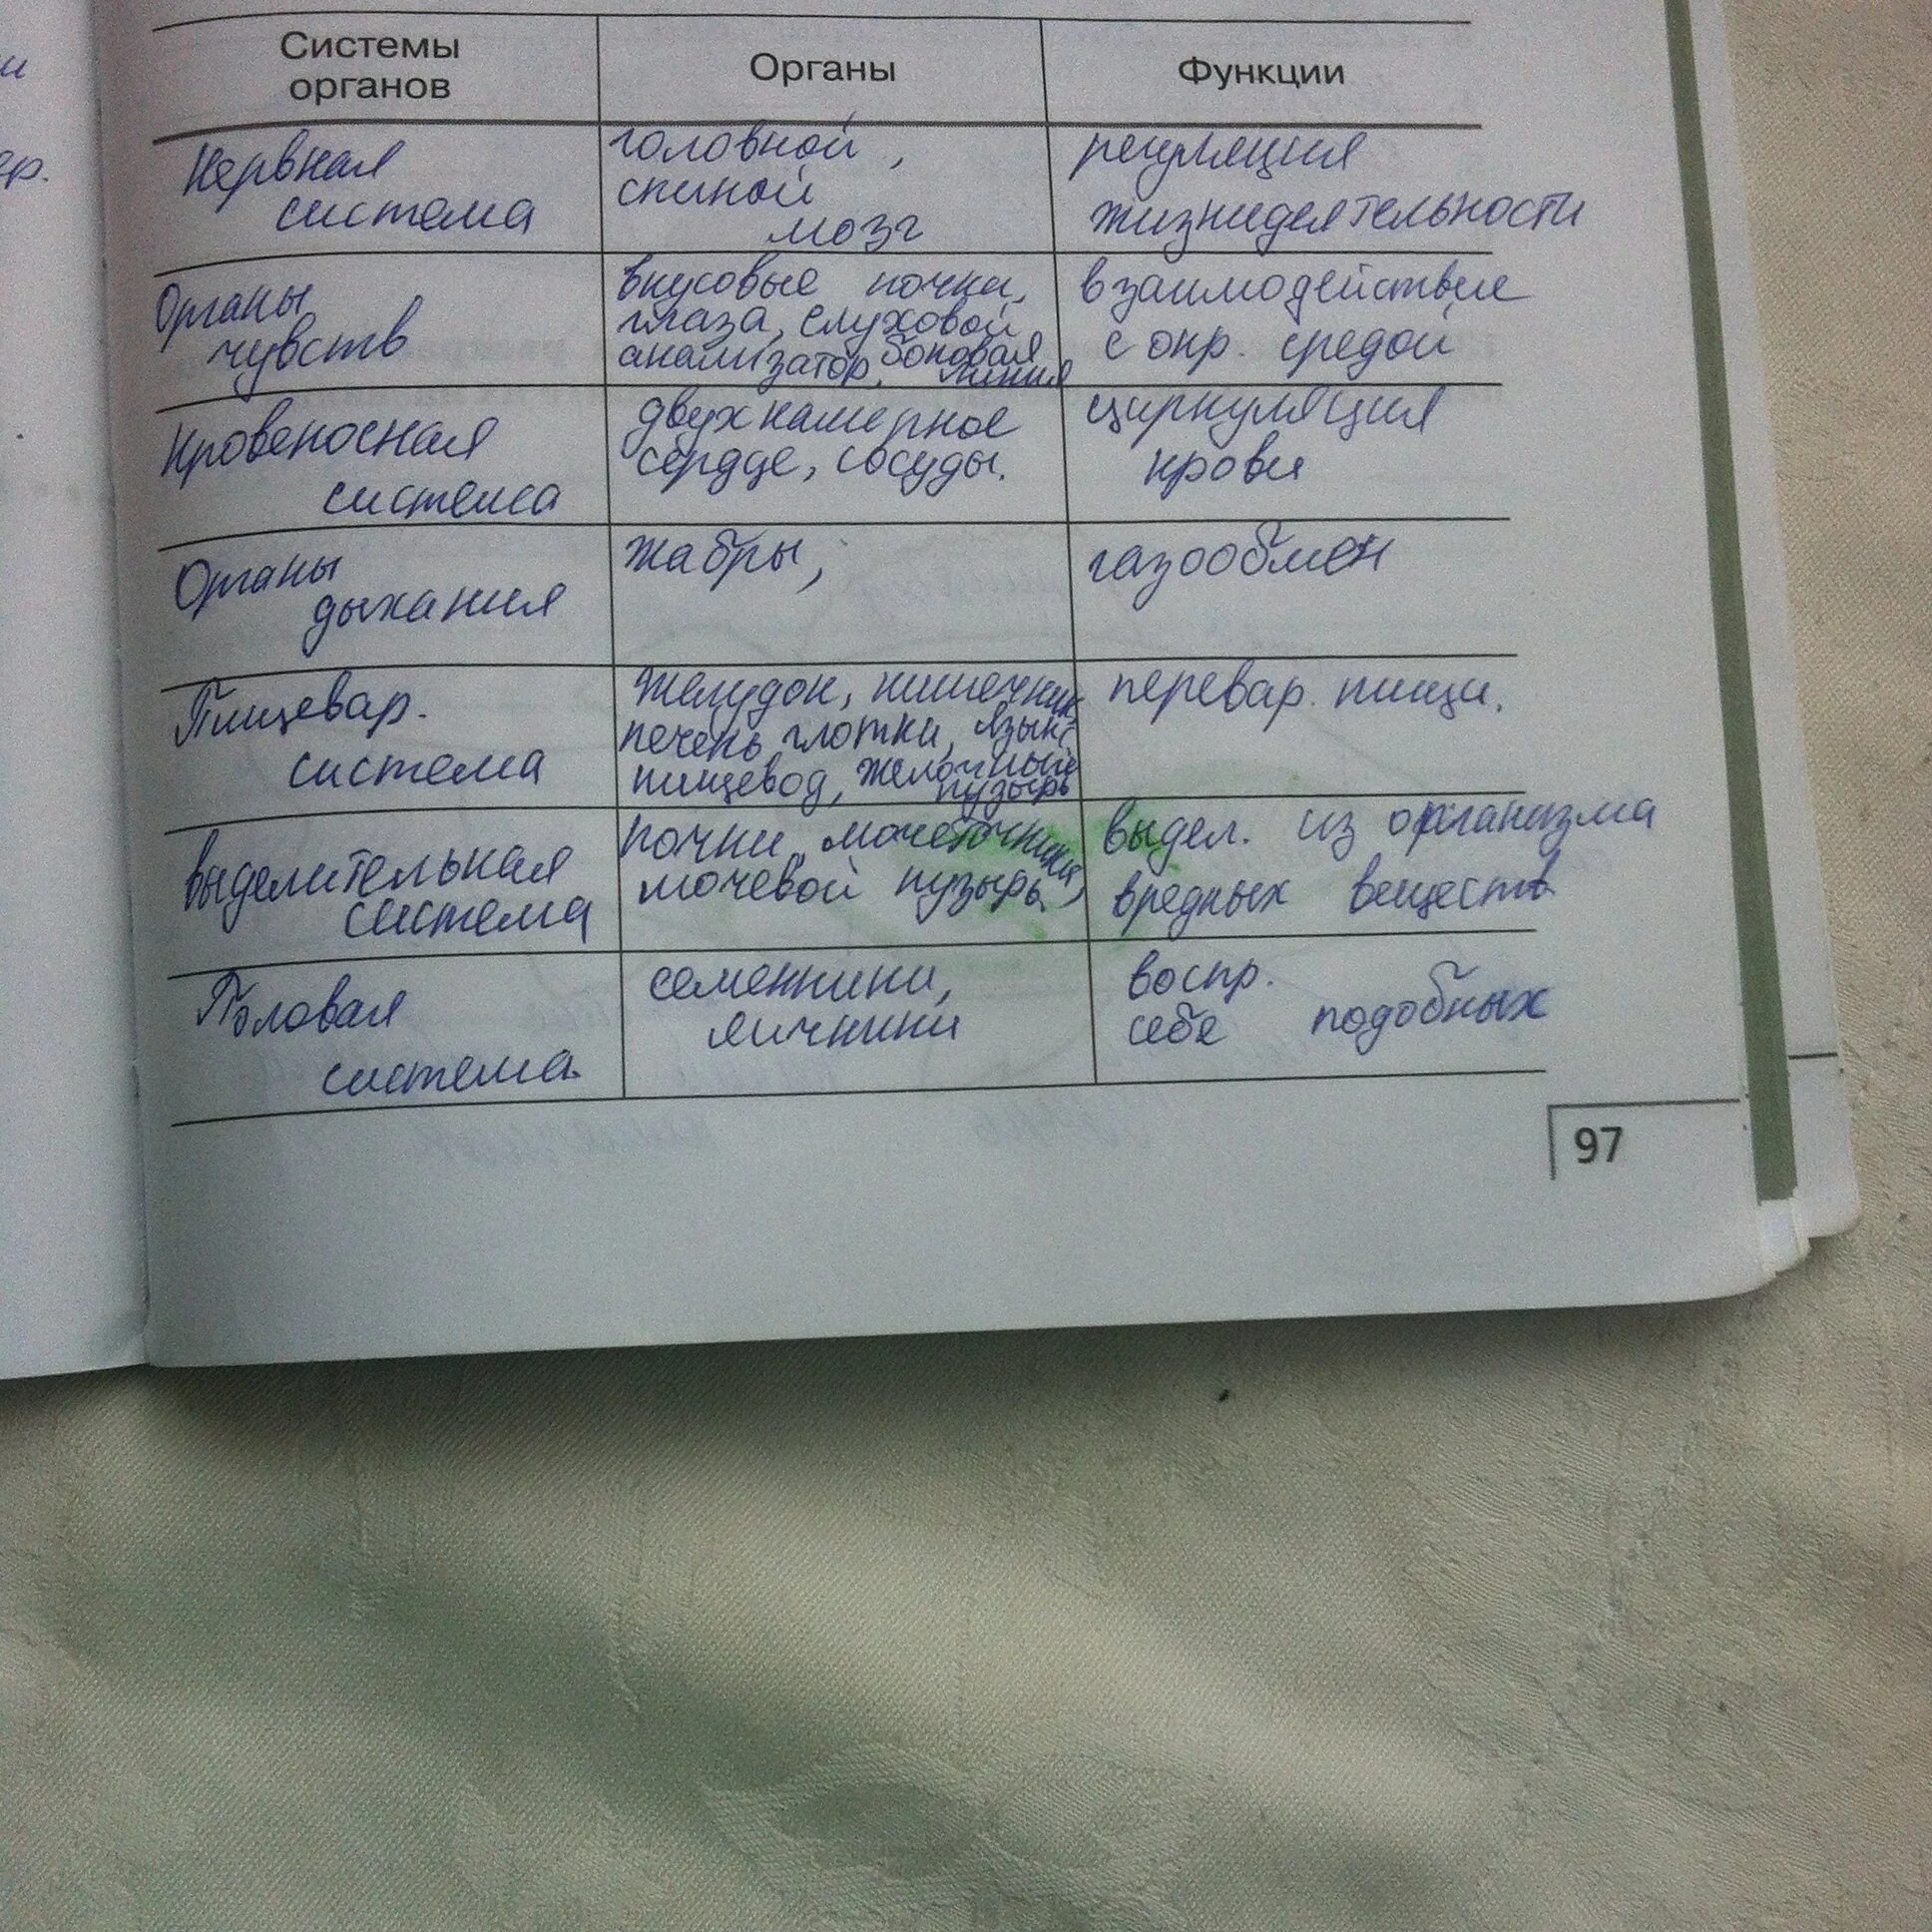 Системы органов
Органы
Функции
Нервная
система
головной,
спиной
мозг
регуляция
жизнидеятельности
Органы
чувств
вкусовые почки,
глаза, слуховой
анализатор, боковая
линия
взаимодействие
с окр. средой
Кровеносная
система
двухкамерное
сердце, сосуды.
циркуляция
крови
Органы
дыхания
жабры,
газообмен
Пищевар.
система
желудок, кишечник,
печень, глотки, язык,
пищевод, желочный
пузырь
перевар. пищи.
выделительная
система
почки, мочеточники,
мочевой пузырь
выдел. из организма
вредных веществ
Половая
система.
семенники,
яичники
воспр.
себе подобных
97